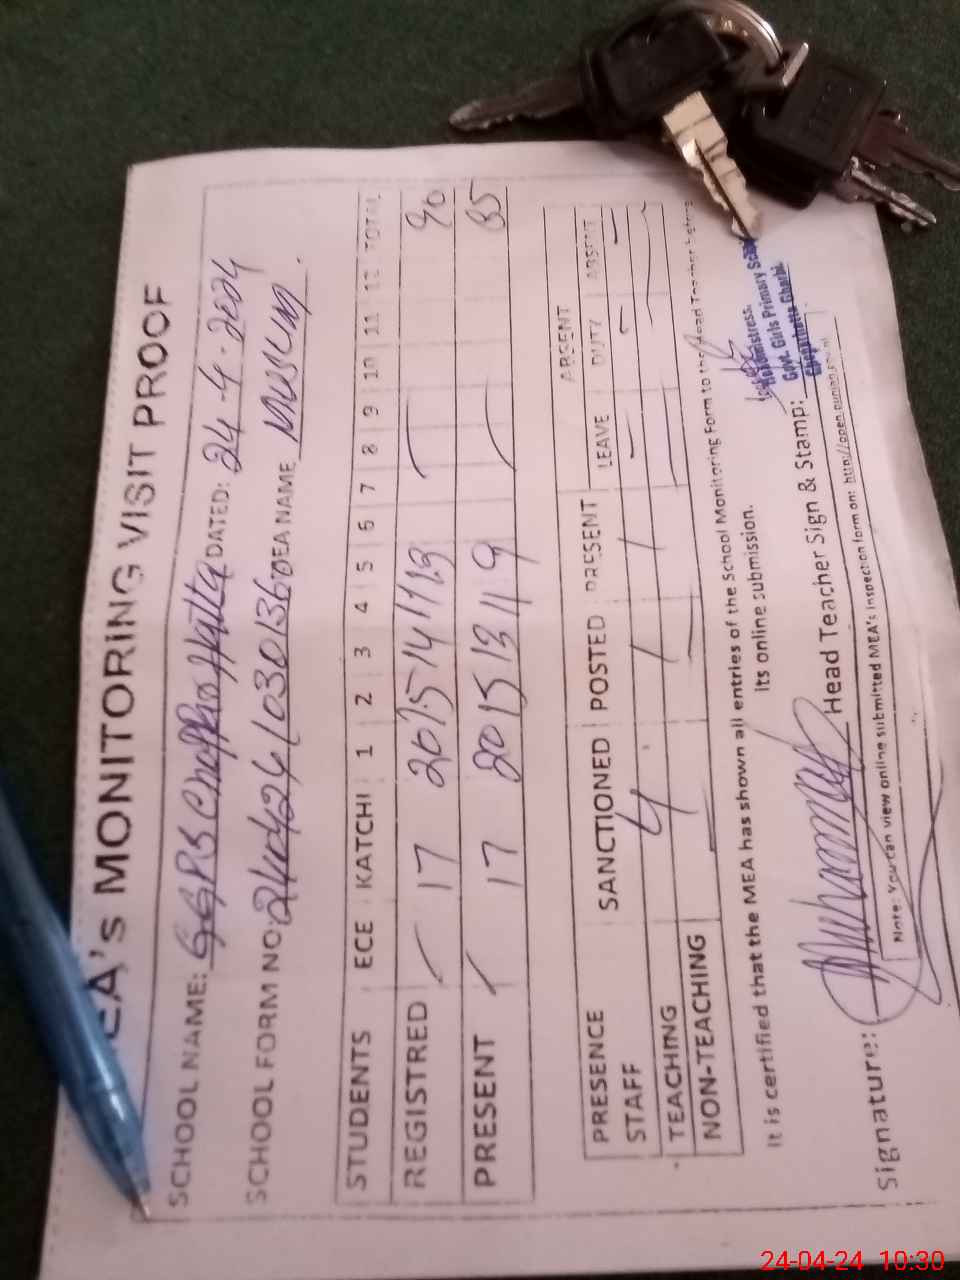 MEA's MONITORING VISIT PROOF
SCHOOL NAME: GGPS DATED: 24-4-2024
SCHOOL FORM NO: DEA NAME
STUDENTS ECE KATCHI 1 2 3 4 5 6 7 8 9 10 11 12 TOTAL
REGISTRED 17 20 15 14 11 13 90
PRESENT 17 20 15 13 11 9 85
ABSENT
PRESENCE SANCTIONED POSTED PRESENT LEAVE DUTY ABSENT
STAFF
TEACHING 4
NON-TEACHING
It is certified that the MEA has shown all entries of the School Monitoring Form to the Head Teacher before
its online submission.
Headmistress.
Govt. Girls Primary School
Signature: Head Teacher Sign & Stamp:
Note: You can view online submitted MEA's inspection form on: http://open.punjab.gov.pk
24-04-24 10:30